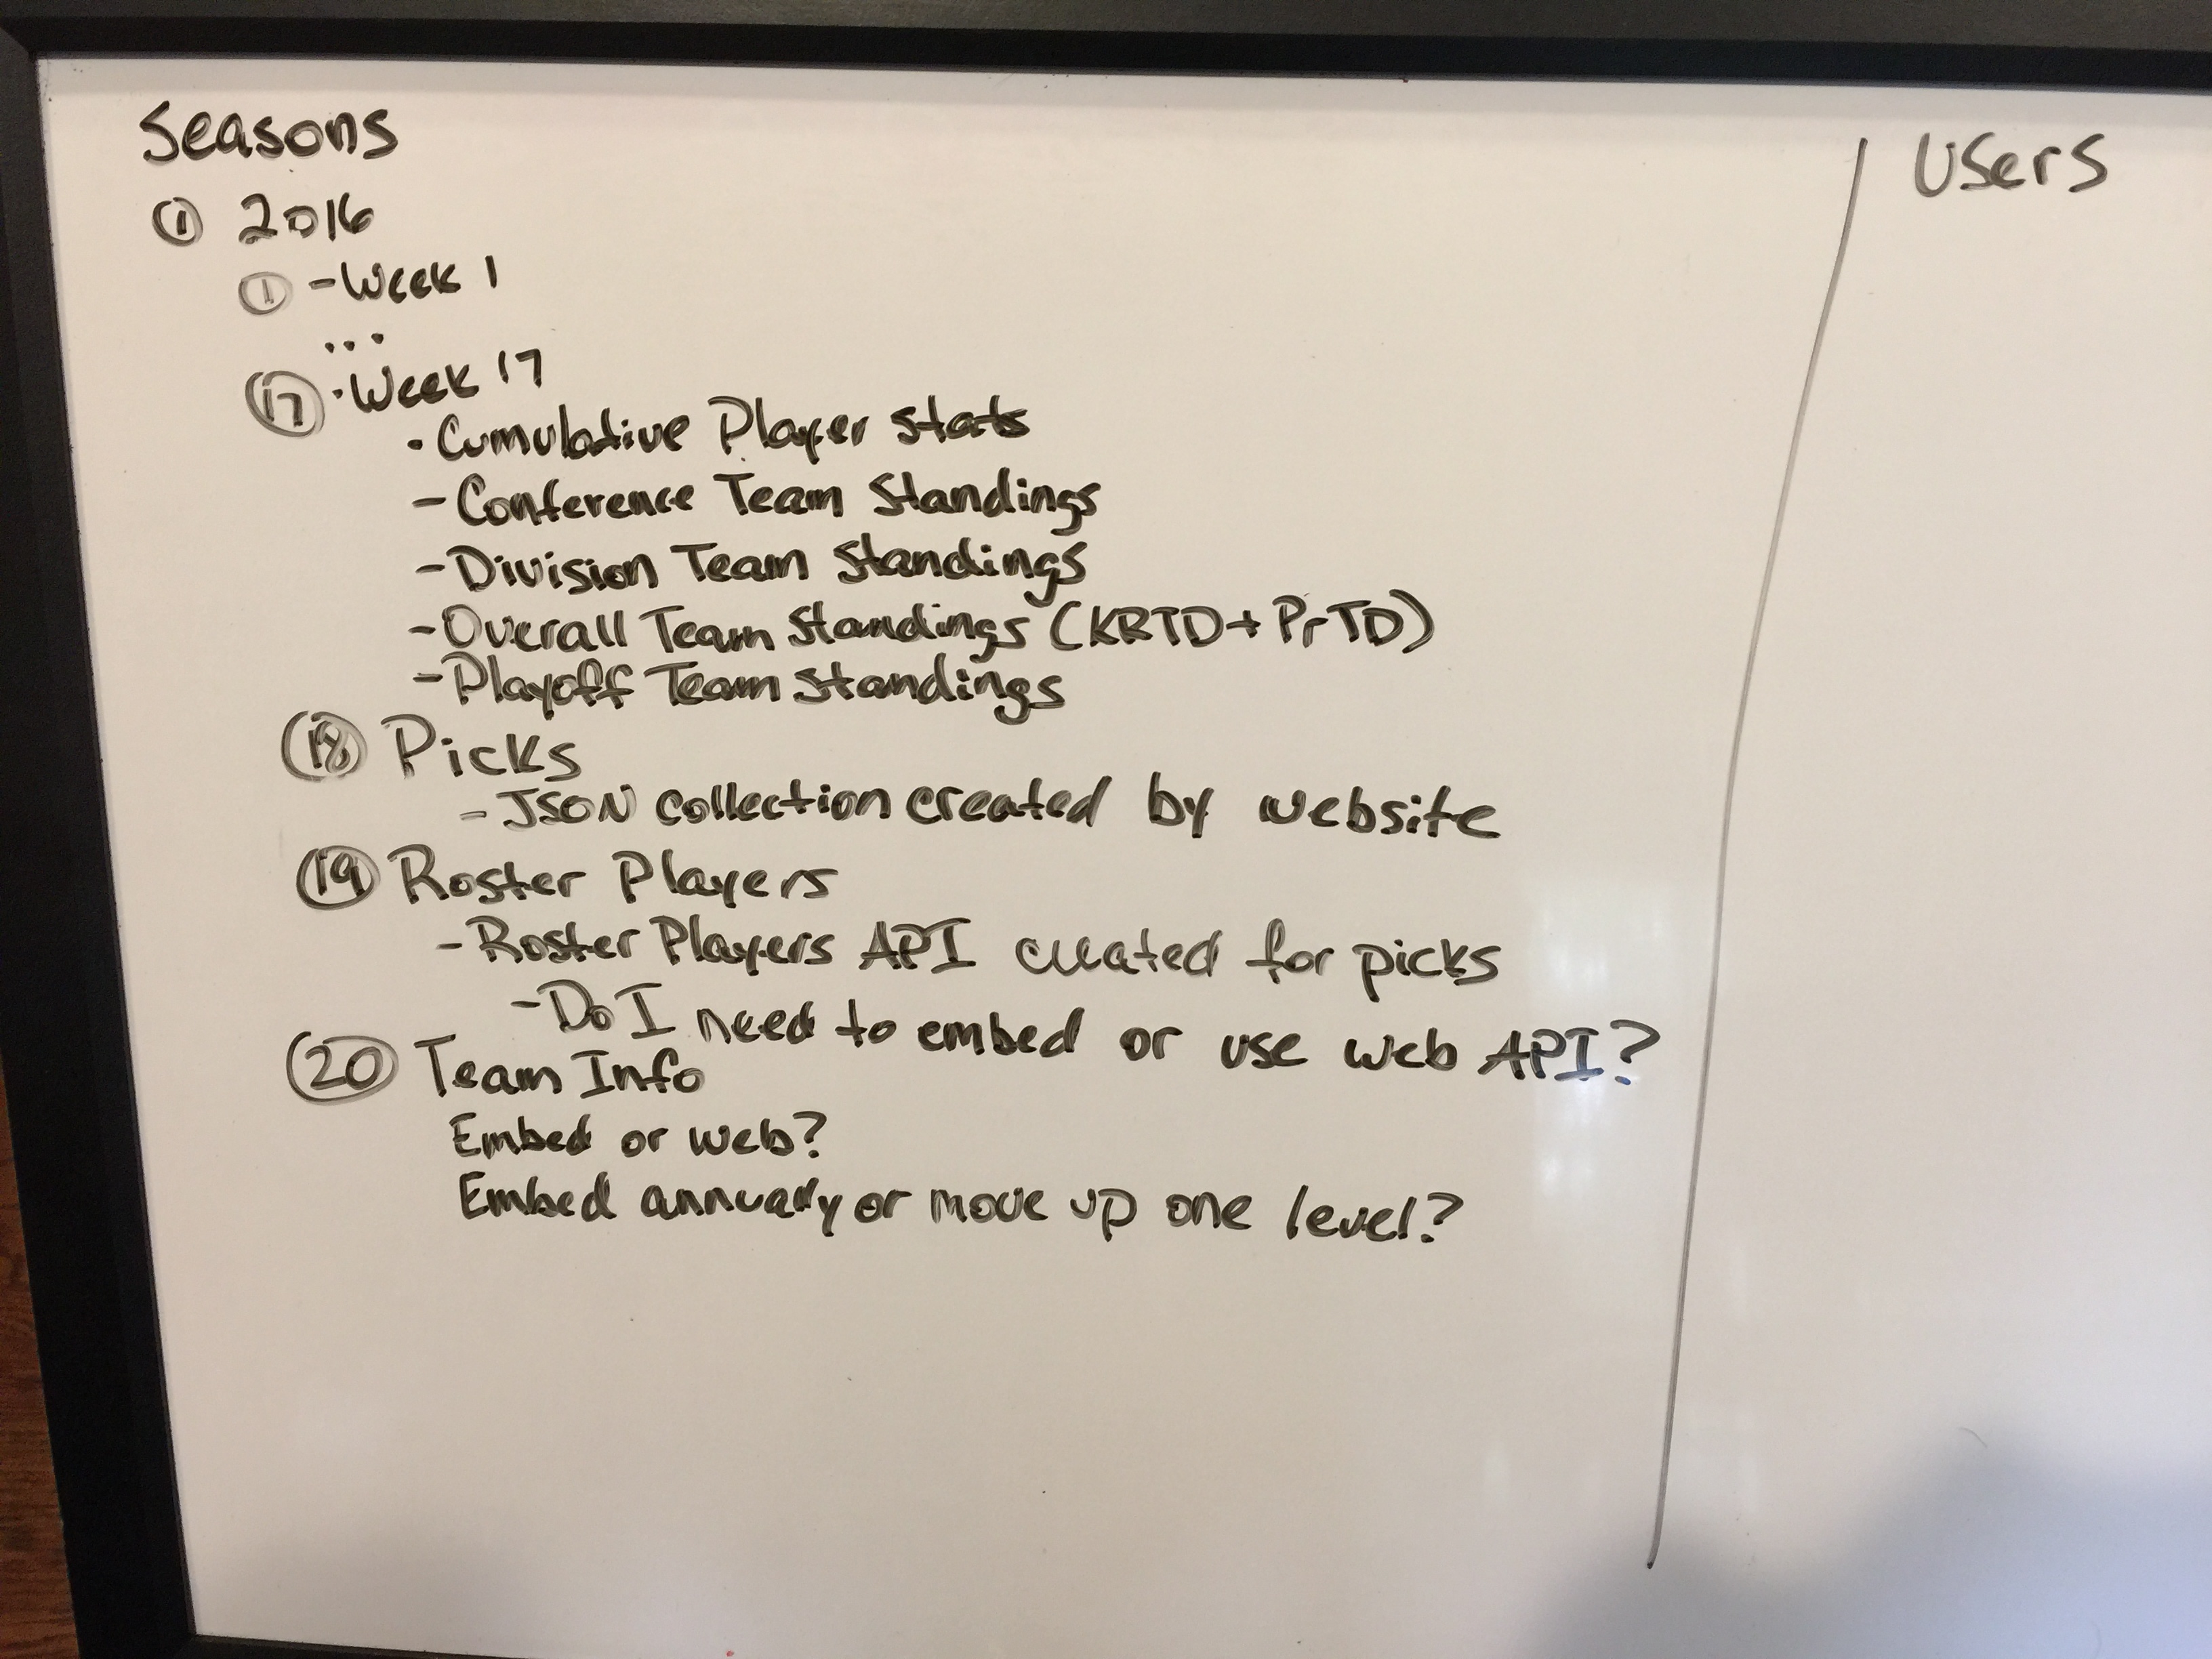 Seasons
① 2016
① - Week 1
...
⑰ · Week 17
· Cumulative Player Stats
- Conference Team Standings
- Division Team Standings
- Overall Team Standings (KRTD + PrTD)
- Playoff Team Standings
⑱ Picks
- JSON collection created by website
⑲ Roster Players
- Roster Players API created for picks
- Do I need to embed or use web API?
⑳ Team Info
Embed or web?
Embed annually or move up one level?
Users